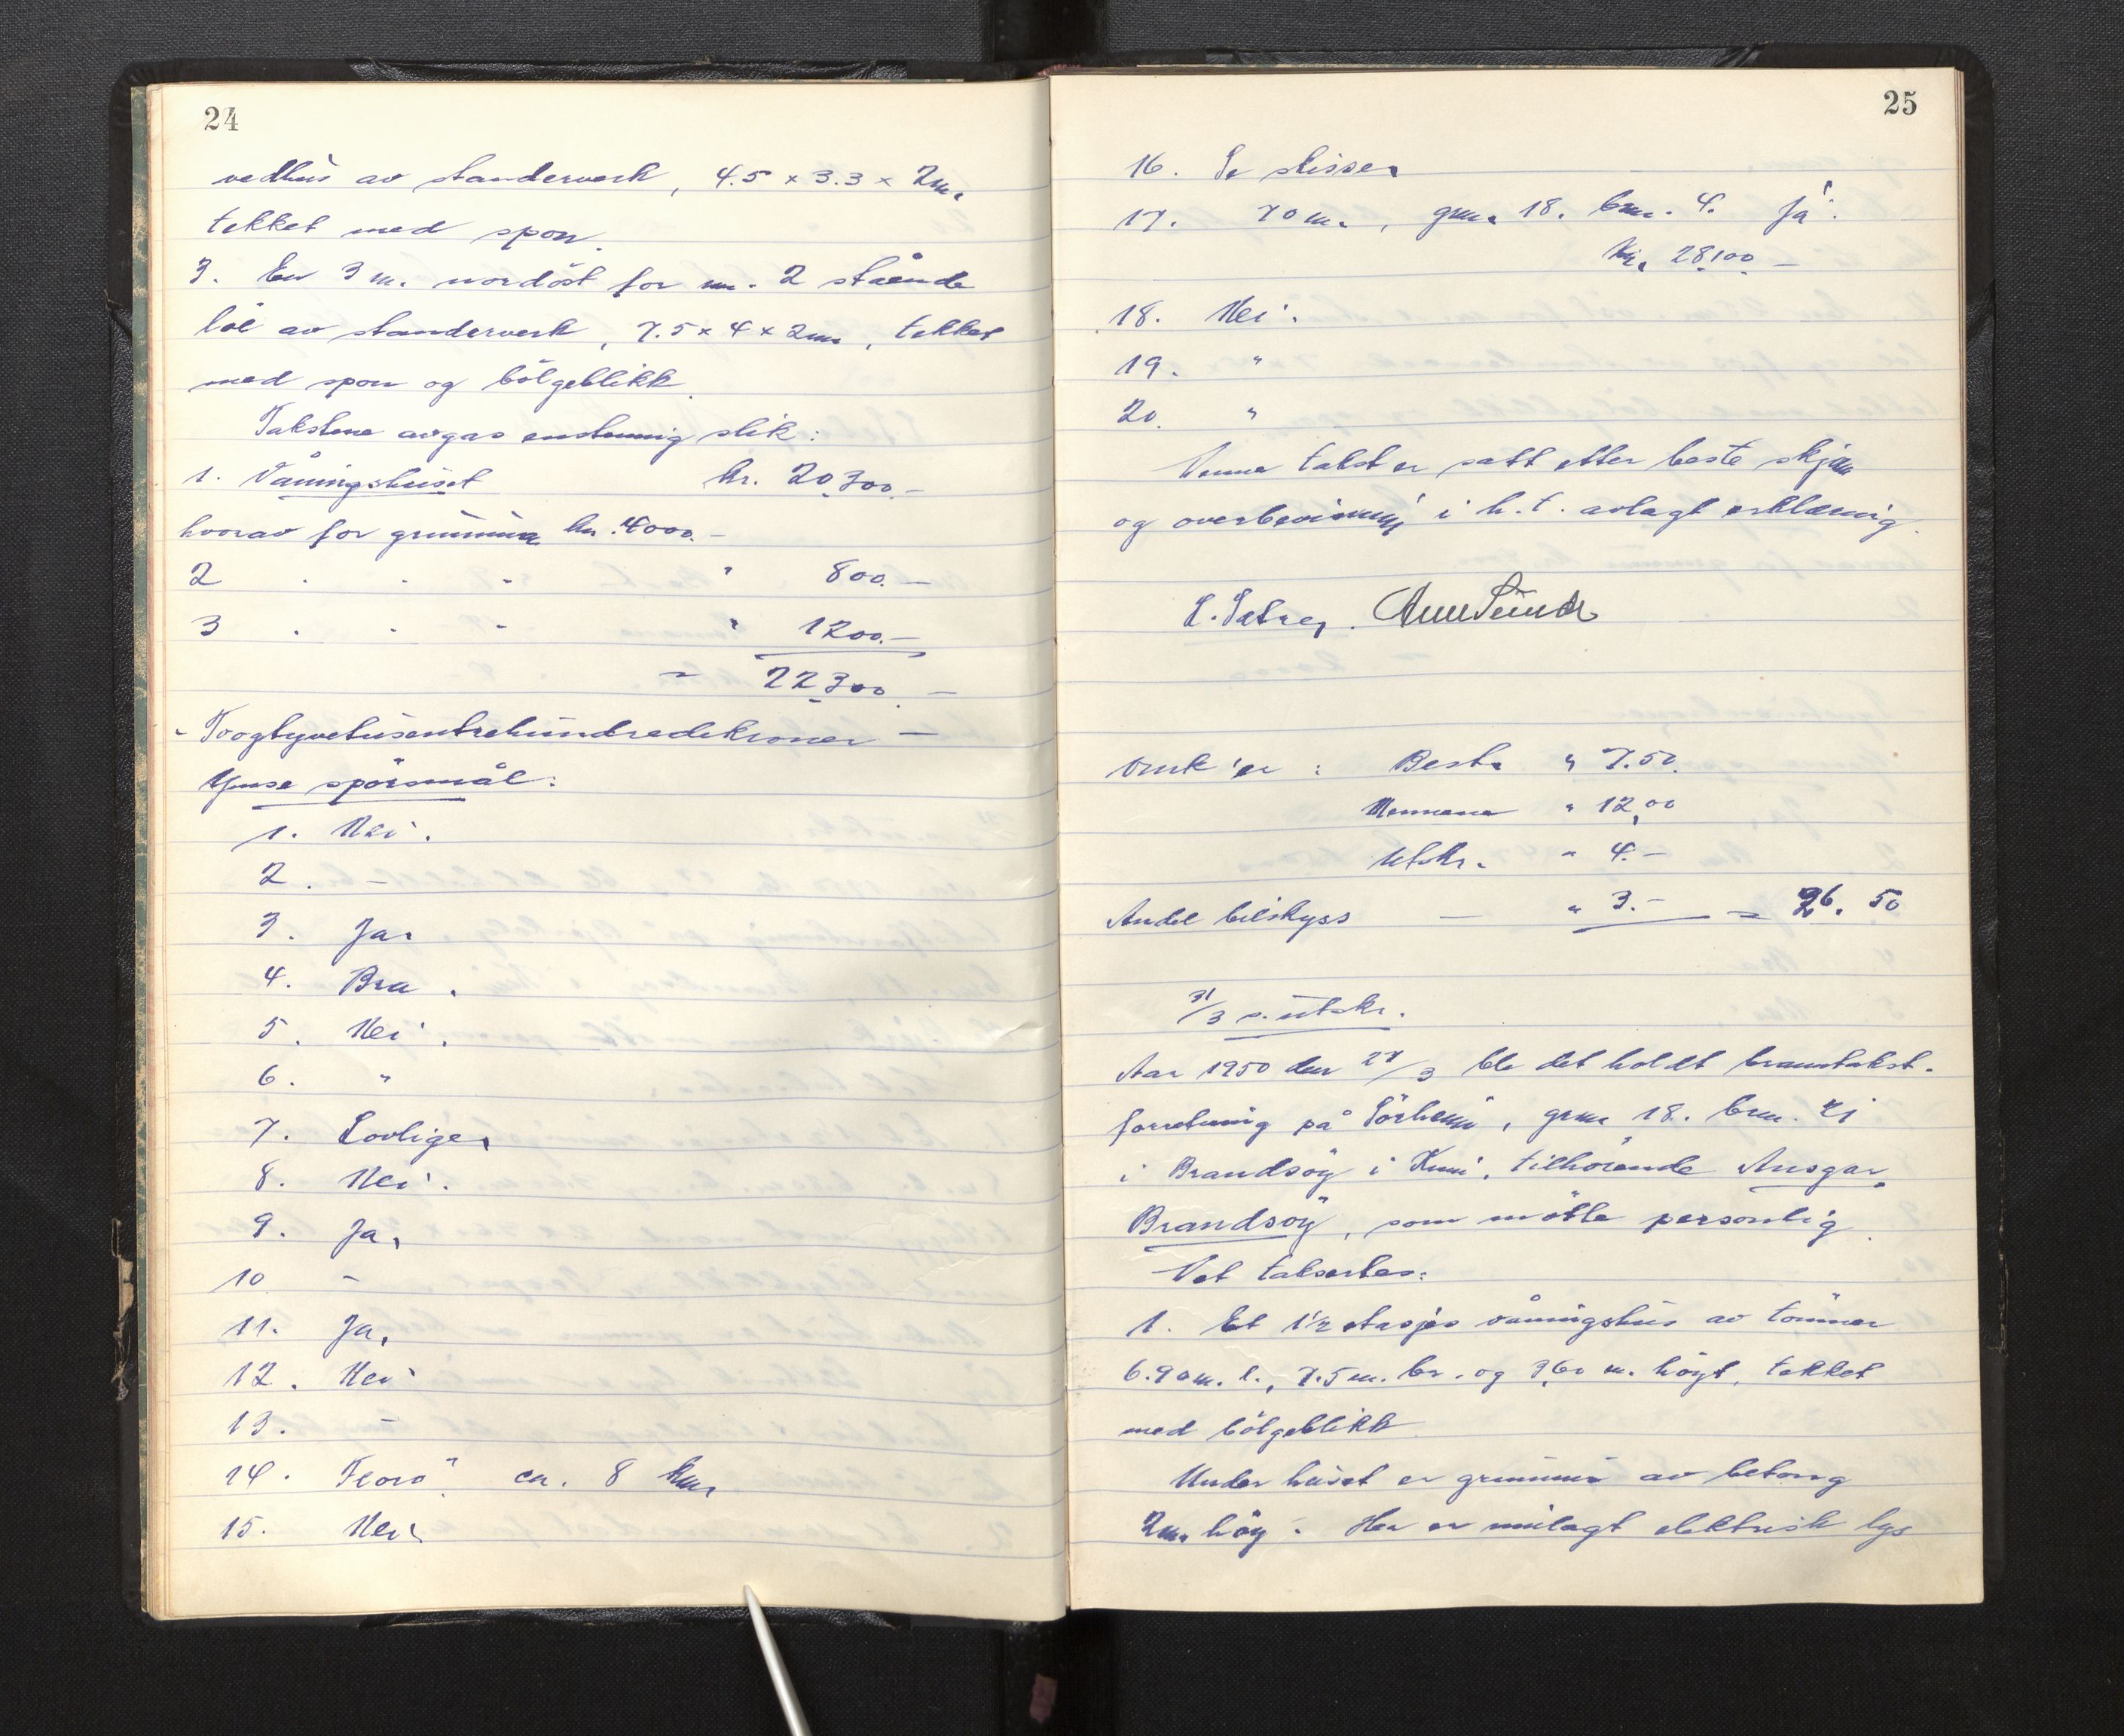 24
vedhus av standerverk, 4.5 x 3.3 x 2m.
tekket med spon.
3. En 3 m. nordöst for nr. 2 stående
löe av standerverk, 7.5 x 4 x 2m, tekket
med spon og bölgeblikk.
Takstene avgas enstemmig slik:
1. Våningshuset kr. 20300.-
hvorav for grunnmur kr. 4000.-
2 . . . " 800.-
3 . . . " 1200.-
" 22300.-
- Toogtyvetusentrehundredekroner -
Ymse spörsmål:
1. Nei.
2. -
3. Ja.
4. Bra.
5. Nei.
6. "
7. Lovlige.
8. Nei.
9. Ja.
10 -
11. Ja.
12. Nei
13. -
14. Florö ca. 8 km.
15. Nei
25
16. Se skisse.
17. 70 m., grn. 18. brn. 4. Ja.
Kr. 28100.-
18. Nei.
19. "
20. "
Denne takst er satt etter beste skjön
og overbevisning i h.t. avlagt erklæring.
Omk'er: Best. " 7.50.
Mennene " 12,00
Utskr. " 4.-
Andel bilskyss - " 3.- = 26.50
31/3 s. utskr.
Aar 1950 den 27/3 ble det holdt branntakst-
forretning på Sörheim, grn. 18. brn.
i Brandsöy i Kinn, tilhörende Ansgar
Brandsöy, som mötte personlig.
Det taksertes:
1. Et 1½ etasjes våningshus av tömmer
6.90m. l., 7.5 m. br. og 3,60 m. höyt, tekket
med bölgeblikk.
Under huset er grunnmur av betong
2m. höy. Her er innlagt elektrisk lys